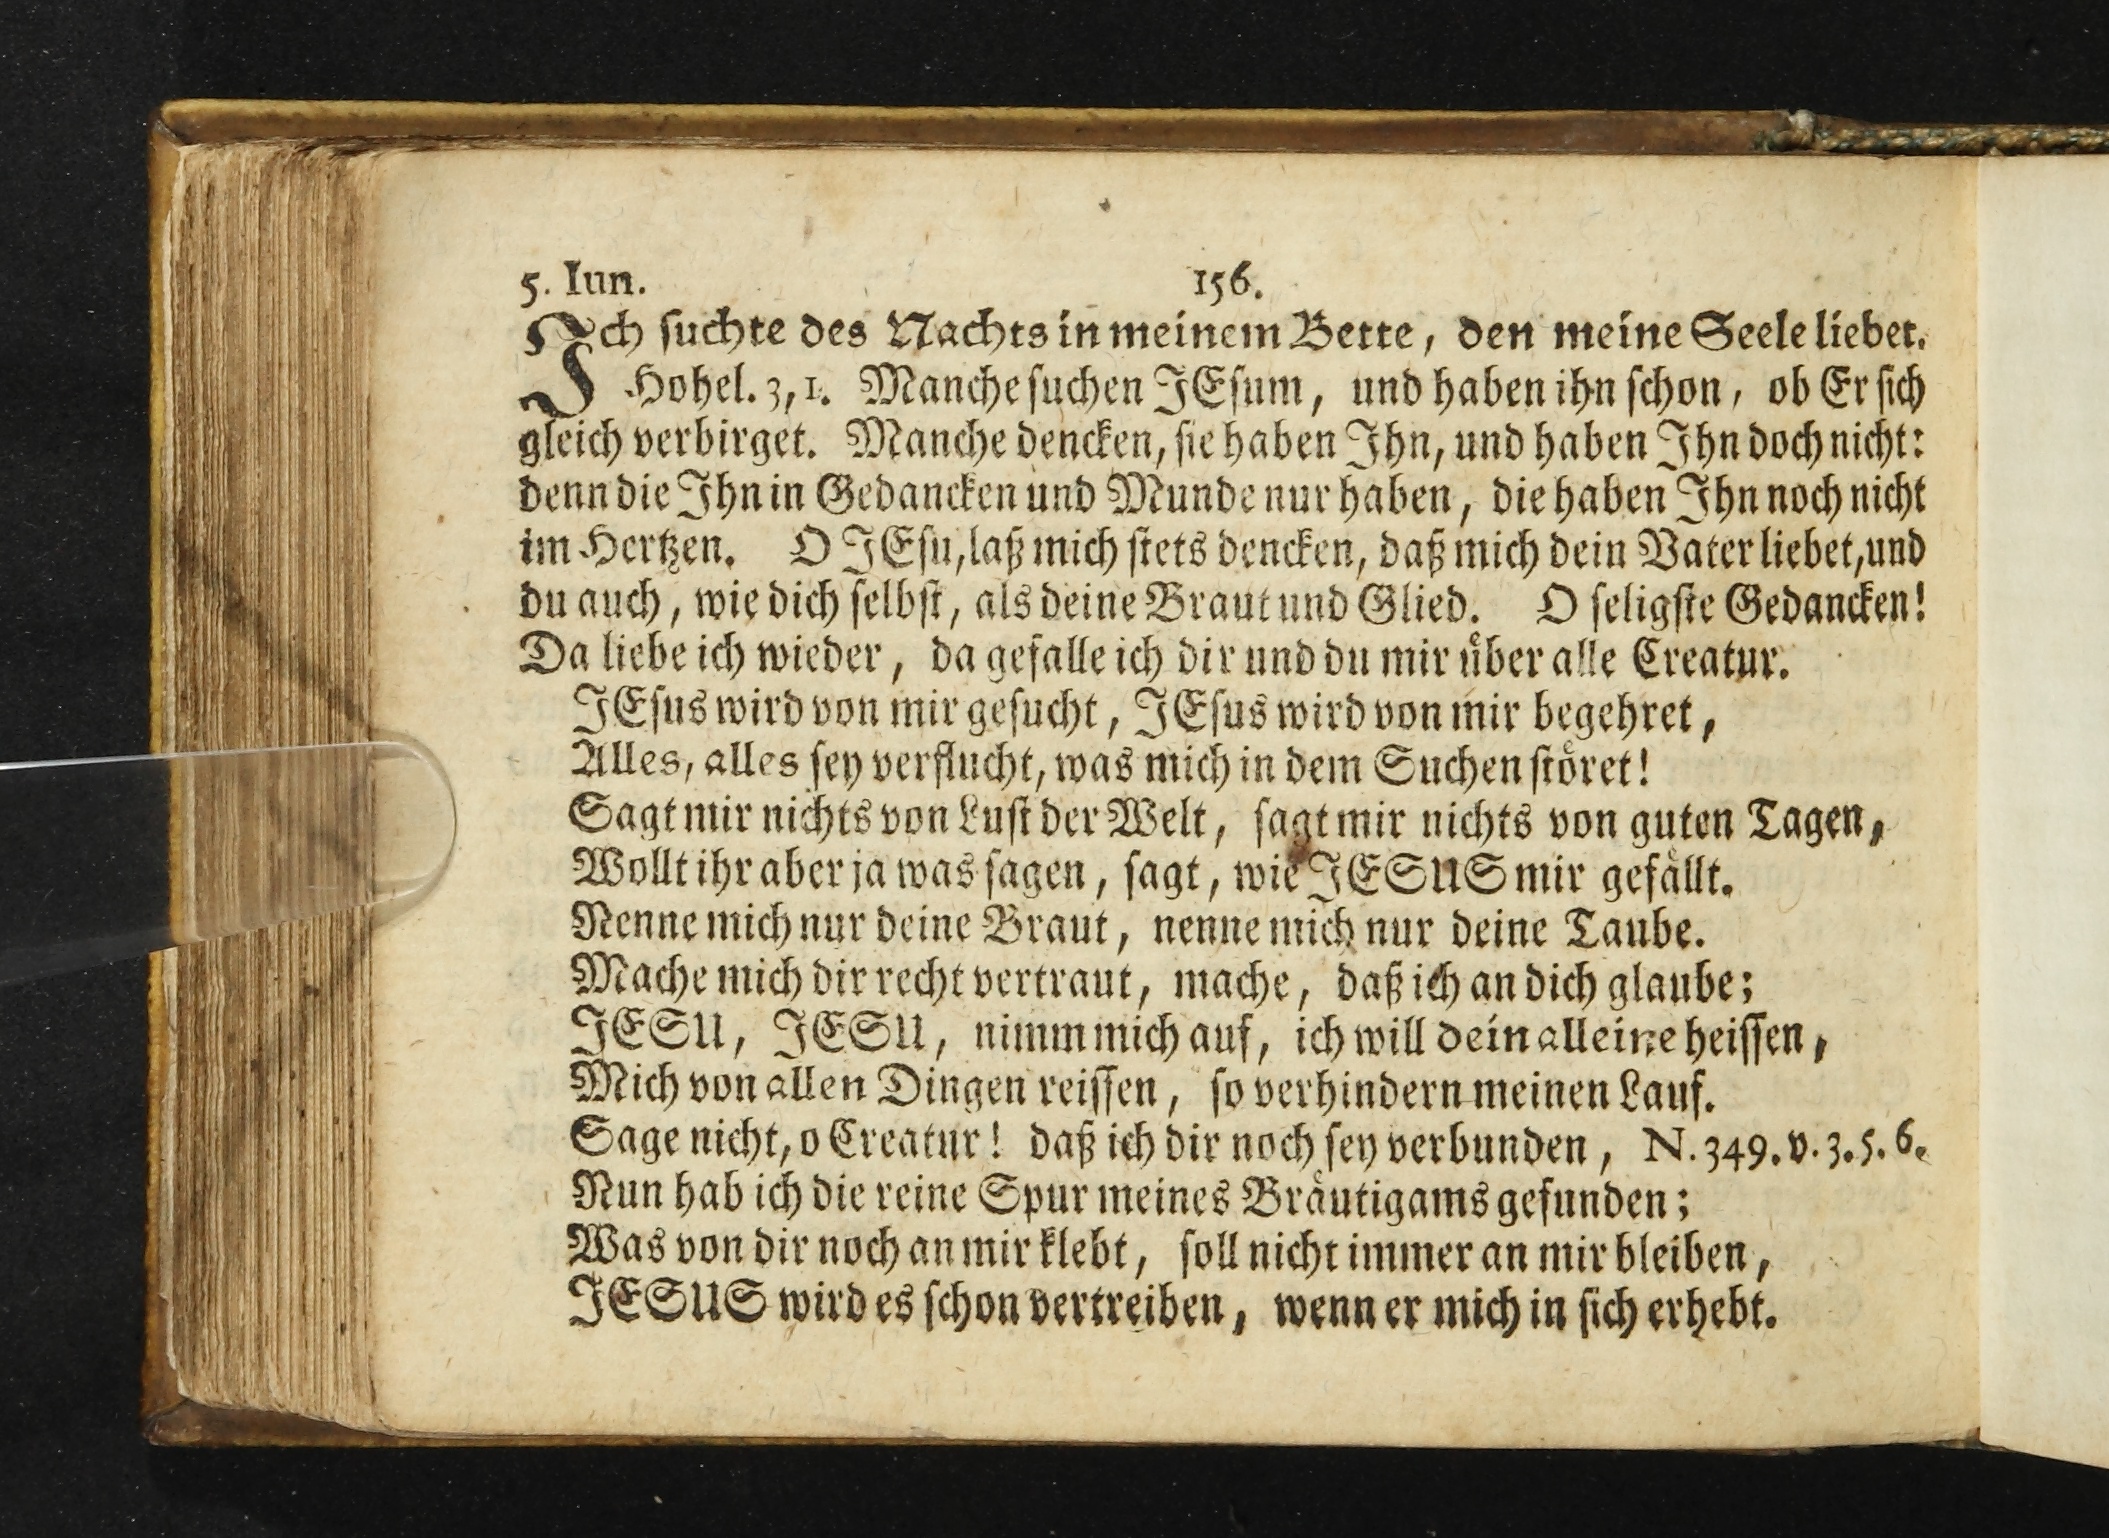 5. Iun. 156.
Ich ſuchte des Nachts in meinem Bette, den meine Seele liebet.
Hohel. 3, 1. Manche ſuchen JEſum, und haben ihn ſchon, ob Er ſich
gleich verbirget. Manche dencken, ſie haben Ihn, und haben Ihn doch nicht:
denn die Ihn in Gedancken und Munde nur haben, die haben Ihn noch nicht
im Hertzen. O JEſu, laß mich ſtets dencken, daß mich dein Vater liebet, und
du auch, wie dich ſelbſt, als deine Braut und Glied. O ſeligſte Gedancken!
Da liebe ich wieder, da gefalle ich dir und du mir uͤber alle Creatur.
JEſus wird von mir geſucht, JEſus wird von mir begehret,
Alles, alles ſey verflucht, was mich in dem Suchen ſtoͤret!
Sagt mir nichts von Luſt der Welt, ſagt mir nichts von guten Tagen,
Wollt ihr aber ja was ſagen, ſagt, wie JESUS mir gefaͤllt.
Nenne mich nur deine Braut, nenne mich nur deine Taube.
Mache mich dir recht vertraut, mache, daß ich an dich glaube;
JESU, JESU, nimm mich auf, ich will dein alleine heiſſen,
Mich von allen Dingen reiſſen, ſo verhindern meinen Lauf.
Sage nicht, o Creatur! daß ich dir noch ſey verbunden, N. 349. v. 3. 5. 6.
Nun hab ich die reine Spur meines Braͤutigams gefunden;
Was von dir noch an mir klebt, ſoll nicht immer an mir bleiben,
JESUS wird es ſchon vertreiben, wenn er mich in ſich erhebt.